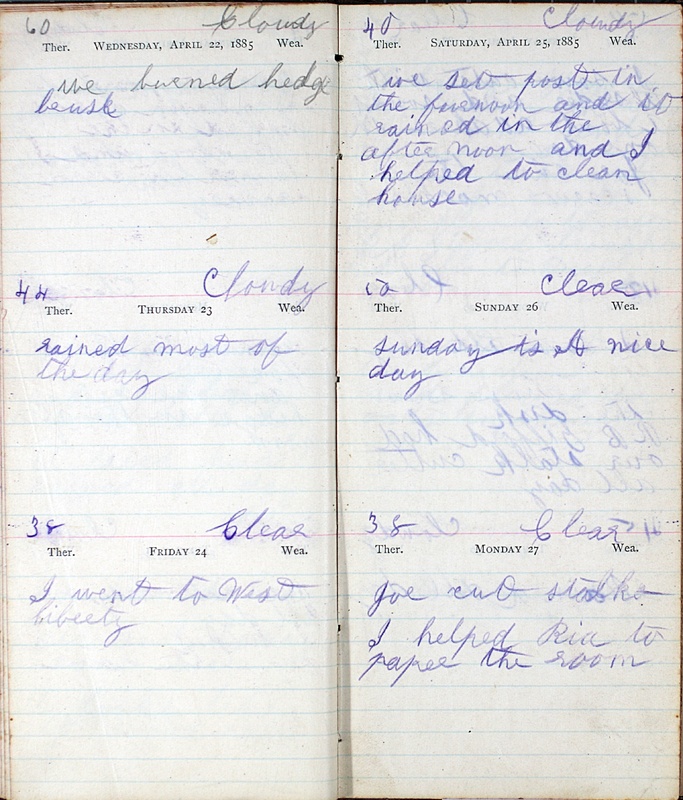 60 Cloudy
Ther. WEDNESDAY, APRIL 22, 1885 Wea.
we burned hedge
brush
44 Cloudy
Ther. THURSDAY 23 Wea.
rained most of
the day
38 Clear
Ther. FRIDAY 24 Wea.
I went to West
liberty
40 Cloudy
Ther. SATURDAY, APRIL 25, 1885 Wea.
we set post in
the fornoon and it
rained in the
after noon and I
helped to clean
house
Clear
Ther. SUNDAY 26 Wea.
sunday is A nice
day
38 Clear
Ther. MONDAY 27 Wea.
Joe cut stalks
I helped Ria to
paper the room